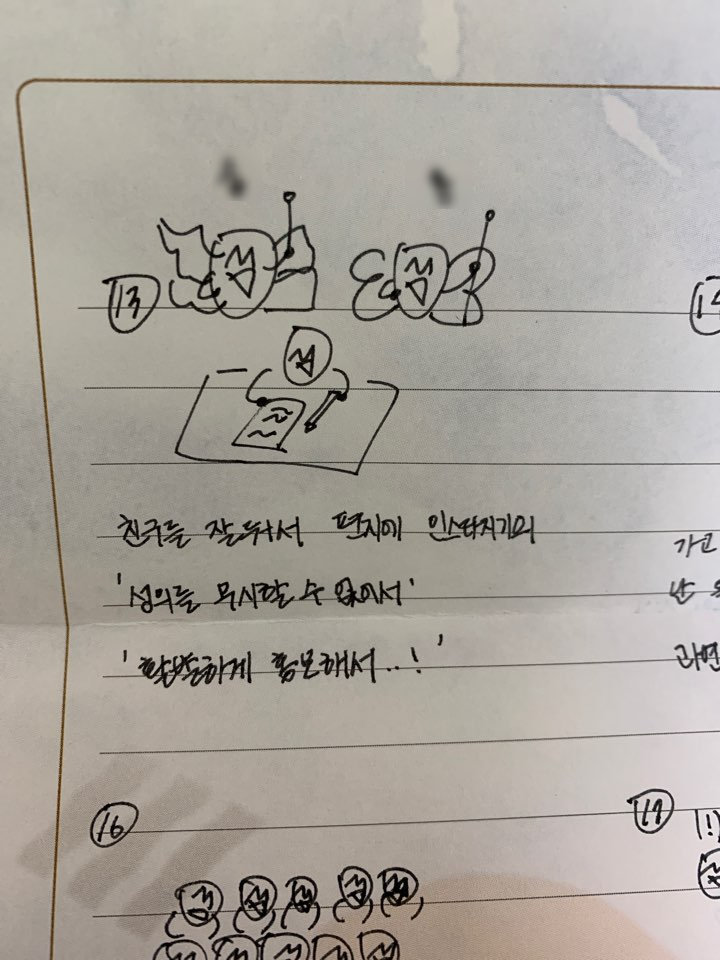 13
친구를 잘 둬서 편지에 인스타지기의
'성의를 무시할 수 없어서'
'활발하게 홍보해서..!'
가고
난
라면
16
19